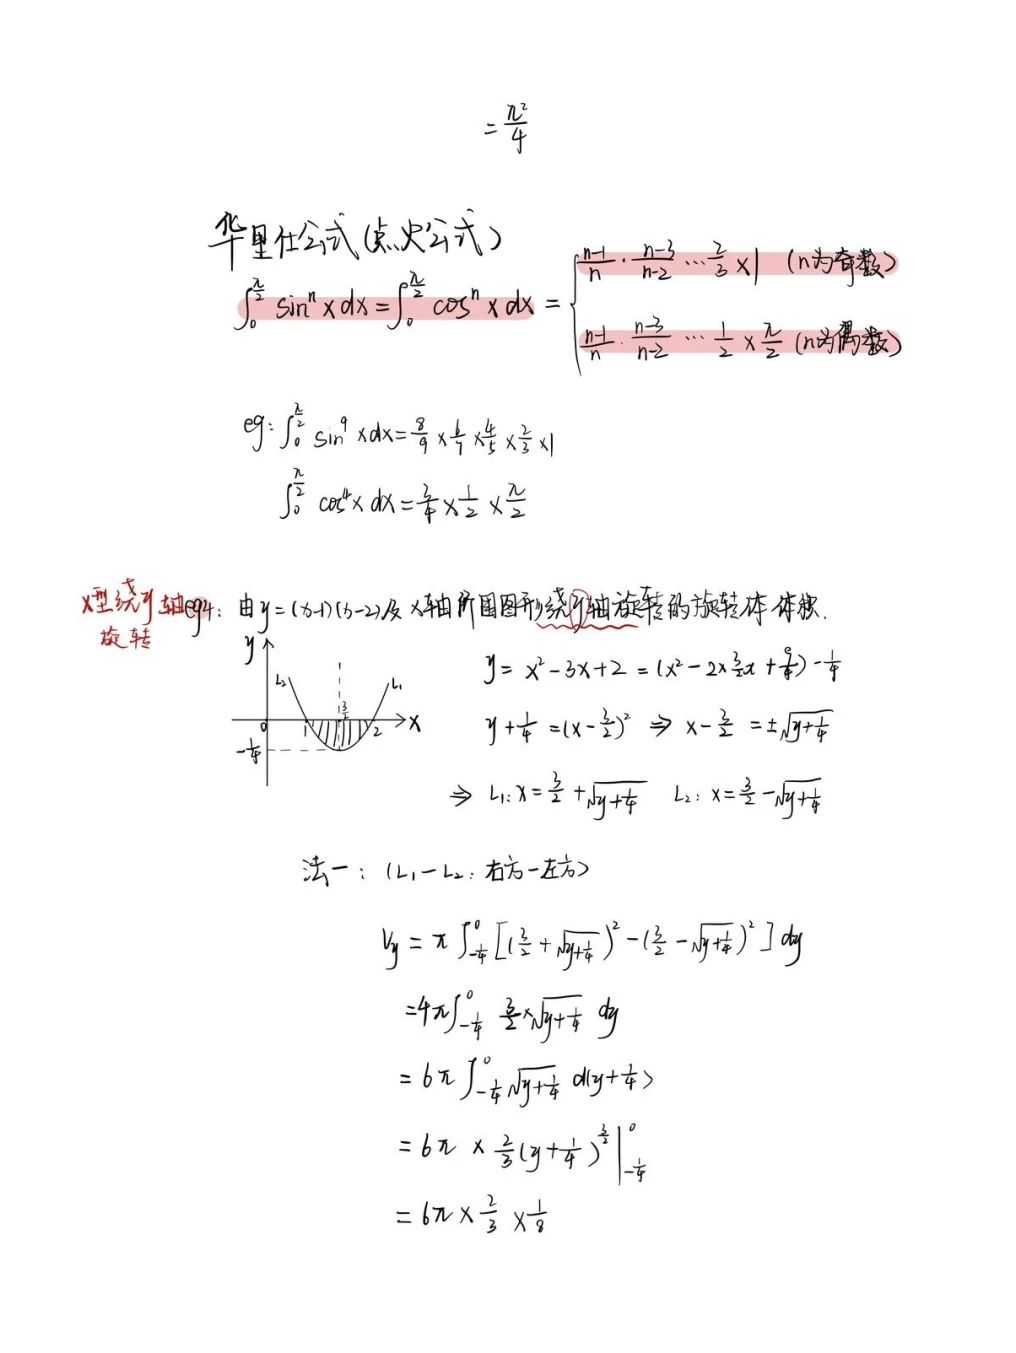 = π²/4
华里士公式(点火公式)
∫₀^(π/2) sinⁿx dx = ∫₀^(π/2) cosⁿx dx = { (n-1)/n · (n-3)/(n-2) ··· 2/3 × 1 (n为奇数)
(n-1)/n · (n-3)/(n-2) ··· 1/2 × π/2 (n为偶数)
eg: ∫₀^(π/2) sin⁹x dx = 8/9 × 6/7 × 4/5 × 2/3 × 1
∫₀^(π/2) cos⁴x dx = 3/4 × 1/2 × π/2
x型绕y轴旋转
eg4: 由y=(x-1)(x-2)及x轴所围图形绕y轴旋转的旋转体体积.
y L₂ L₁ 3/2 0 1 2 x -1/4
y = x²-3x+2 = (x²-2×3/2x+9/4)-1/4
y+1/4 = (x-3/2)² ⇒ x-3/2 = ±√(y+1/4)
⇒ L₁: x = 3/2+√(y+1/4) L₂: x = 3/2-√(y+1/4)
法一: (L₁-L₂: 右方-左方)
Vy = π∫₋₁/₄⁰ [(3/2+√(y+1/4))²-(3/2-√(y+1/4))²] dy
= 4π∫₋₁/₄⁰ 3/2×√(y+1/4) dy
= 6π∫₋₁/₄⁰ √(y+1/4) d(y+1/4)
= 6π × 2/3(y+1/4)^(3/2) |₋₁/₄⁰
= 6π × 2/3 × 1/8